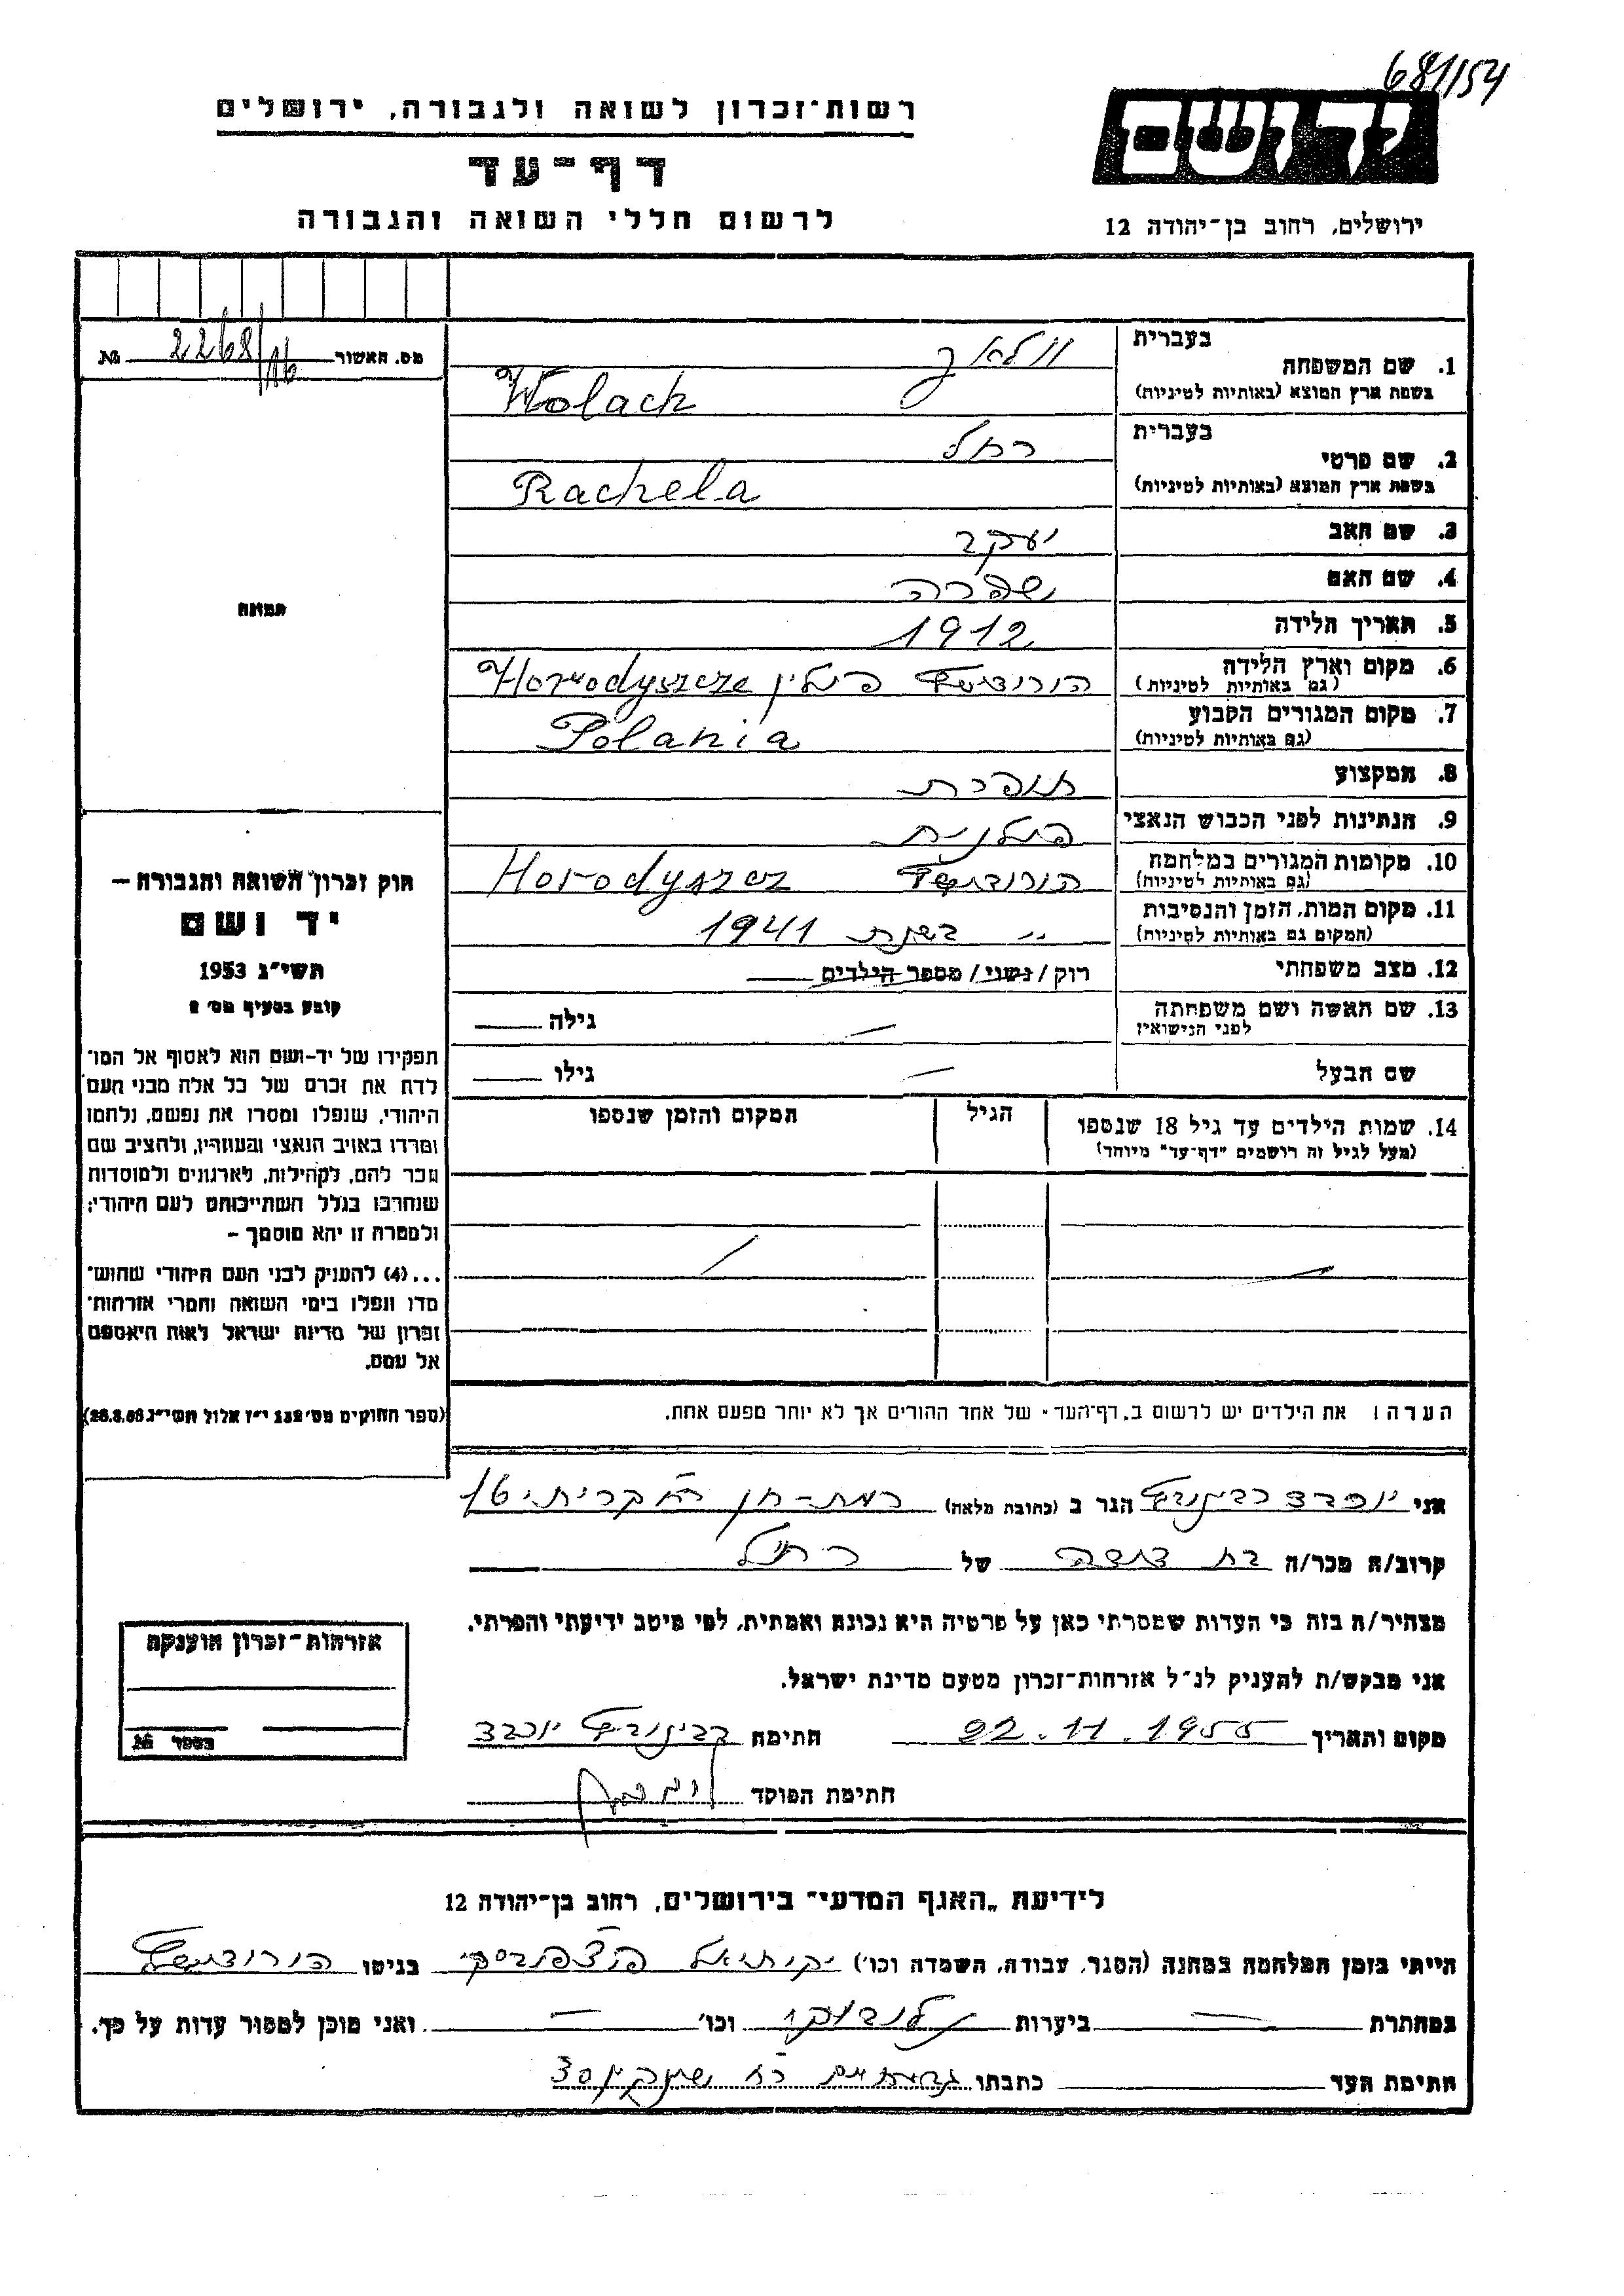 681/154
רשות-זכרון לשואה ולגבורה, ירושלים
יד ושם
דף-עד
לרשום חללי השואה והגבורה
ירושלים, רחוב בן-יהודה 12
מס. האשור 2268/16 №
1. שם המשפחה בעברית וולאך
בשפת ארץ המוצא (באותיות לטיניות) Wolach
2. שם פרטי בעברית רחל
בשפת ארץ המוצא (באותיות לטיניות) Rachela
3. שם האב יעקב
4. שם האם שפרה
5. תאריך הלידה 1912
6. מקום וארץ הלידה (גם באותיות לטיניות) הורודישץ פולין Horodyszcze
7. מקום המגורים הקבוע (גם באותיות לטיניות) Polania
8. המקצוע תופרת
9. הנתינות לפני הכבוש הנאצי פולנית
10. מקומות המגורים במלחמה (גם באותיות לטיניות) הורודישץ Horodyszcz
11. מקום המות, הזמן והנסיבות (המקום גם באותיות לטיניות) " בשנת 1941
12. מצב משפחתי רוק/נשוי/מספר הילדים
13. שם האשה ושם משפחתה לפני הנישואין — גילה
שם הבעל — גילו
14. שמות הילדים עד גיל 18 שנספו הגיל המקום והזמן שנספו
(מעל לגיל זה רושמים "דף-עד" מיוחד)
הערה: את הילדים יש לרשום ב"דף-העד" של אחד ההורים אך לא יותר מפעם אחת.
תמונה
חוק זכרון השואה והגבורה –
יד ושם
תשי"ג 1953
קובע בסעיף מס' 2
תפקידו של יד-ושם הוא לאסוף אל המו־
לדת את זכרם של כל אלה מבני העם
היהודי, שנפלו ומסרו את נפשם, נלחמו
ומרדו באויב הנאצי ובעוזריו, ולהציב שם
וזכר להם, לקהילות, לארגונים ולמוסדות
שנחרבו בגלל השתייכותם לעם היהודי;
ולמטרה זו יהא מוסמך –
...(4) להעניק לבני העם היהודי שהוש־
מדו ונפלו בימי השואה והמרי אזרחות־
זכרון של מדינת ישראל לאות היאספם
אל עמם.
(ספר החוקים מס' 132 י"ז אלול תשי"ג 28.8.53)
אני יוכבד רבינוביץ הגר ב (כתובת מלאה) רמת-חן
קרוב/ה מכר/ה בת דודה של רחל
מצהיר/ה בזה כי העדות שמסרתי כאן על פרטיה היא נכונה ואמתית, לפי מיטב ידיעתי והכרתי.
אני מבקש/ת להעניק לנ"ל אזרחות-זכרון מטעם מדינת ישראל.
מקום ותאריך 22.11.1955 חתימה רבינוביץ יוכבד
חתימת הפוקד
אזרחות-זכרון הוענקה
בספר №
לידיעת "האגף המדעי" בירושלים, רחוב בן-יהודה 12
הייתי בזמן המלחמה במחנה (הסגר, עבודה, השמדה וכו') יקותיאל בגיטו הורודישץ
במחתרת — ביערות וכו' — ואני מוכן למסור עדות על כך.
חתימת העד כתבתו גבעתיים רח' שינקין 30